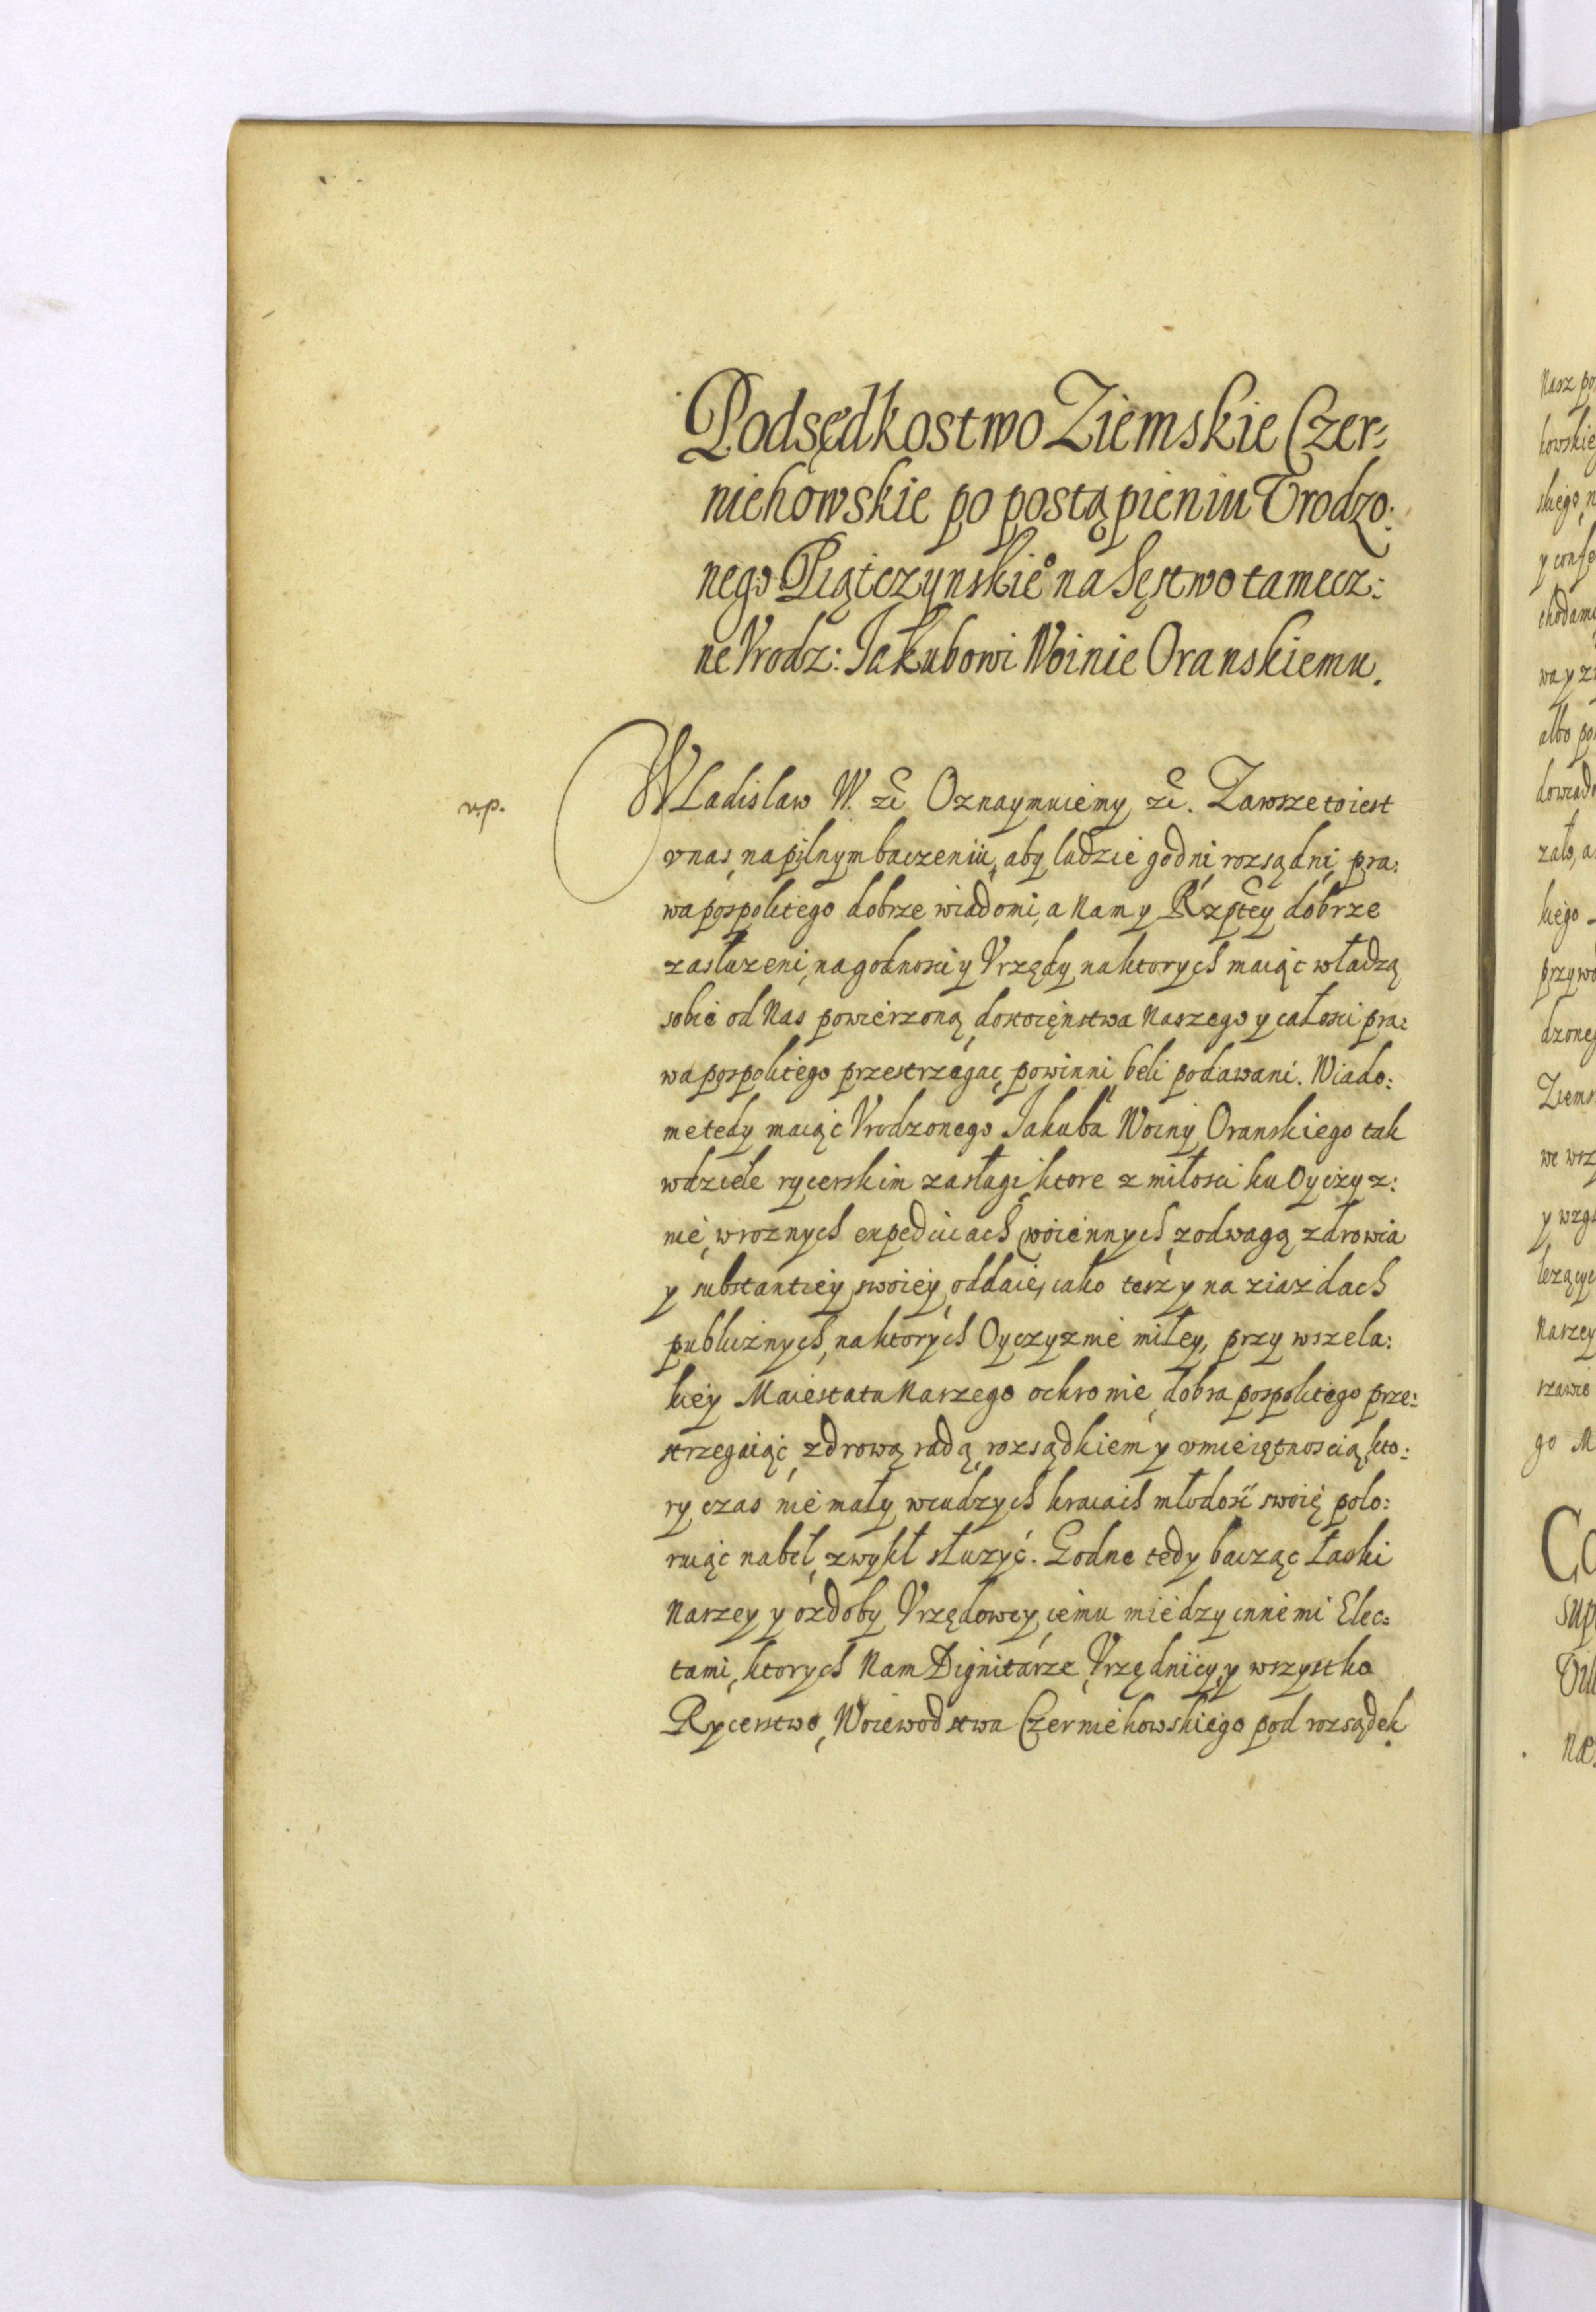 Podsędkostwo Ziemskie Czer:
niehowskie po postąpieniu Vrodzo:
nego Piątczynskie° na Sęstwo tamecz:
ne Vrodz: Jakubowi Woinie Oranskiemu.
v.p.
Wladislaw W. zc Oznaymuiemy zc. Zawsze to iest
v nas, na pilnym baczeniu, aby ludzie godni, rozsądni, pra:
wa pospolitego dobrze wiadomi, a Nam y Rzptey dobrze
zasłuzeni, na godnosci y Vrzędy, na ktorych maiąc władzą
sobie od Nas powierzoną, dostoięnstwa Naszego y całosci pra:
wa pospolitego przestrzegac, powinni, beli podawani. Wiado:
me tedy maiąc Vrodzonego Jakuba Woiny Oranskiego tak
w dziele rycerskim zasługi, ktore z miłosci ku Oyczyz:
nie, w roznych expediciach woiennych, z odwagą zdrowia
y substantiey swoiey, oddaie, iako tesz y na ziazdach
publicznych, na ktorych Oyczyznie miłey, przy wszela:
kiey Maiestatu Naszego ochronie, dobra pospolitego prze:
strzegaiąc, zdrową radą, rozsądkiem y vmieiętnoscią, kto:
ry czas nie mały, w cudzych kraiach młodość swoię polo:
ruiąc nabeł, zwykł słuzyć. Godne tedy bacząc łaski
Naszey y ozdoby Vrzędowey, iemu miedzy innemi Elec:
tami, ktorych Nam Dignitarze, Vrzędnicy, y wszystko
Rycerstwo, Woiewodstwa Czerniehowskiego pod rozsądek